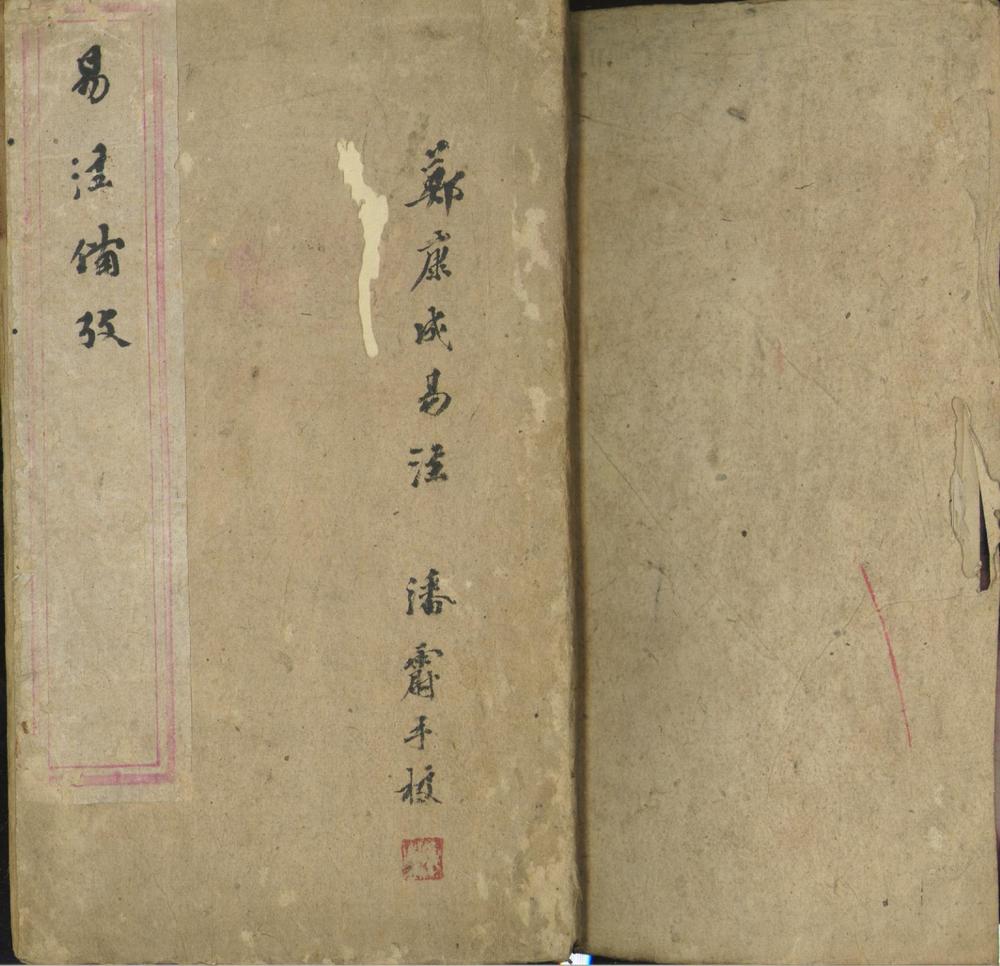 鄭康成易注 潘霨手校
易注備攷